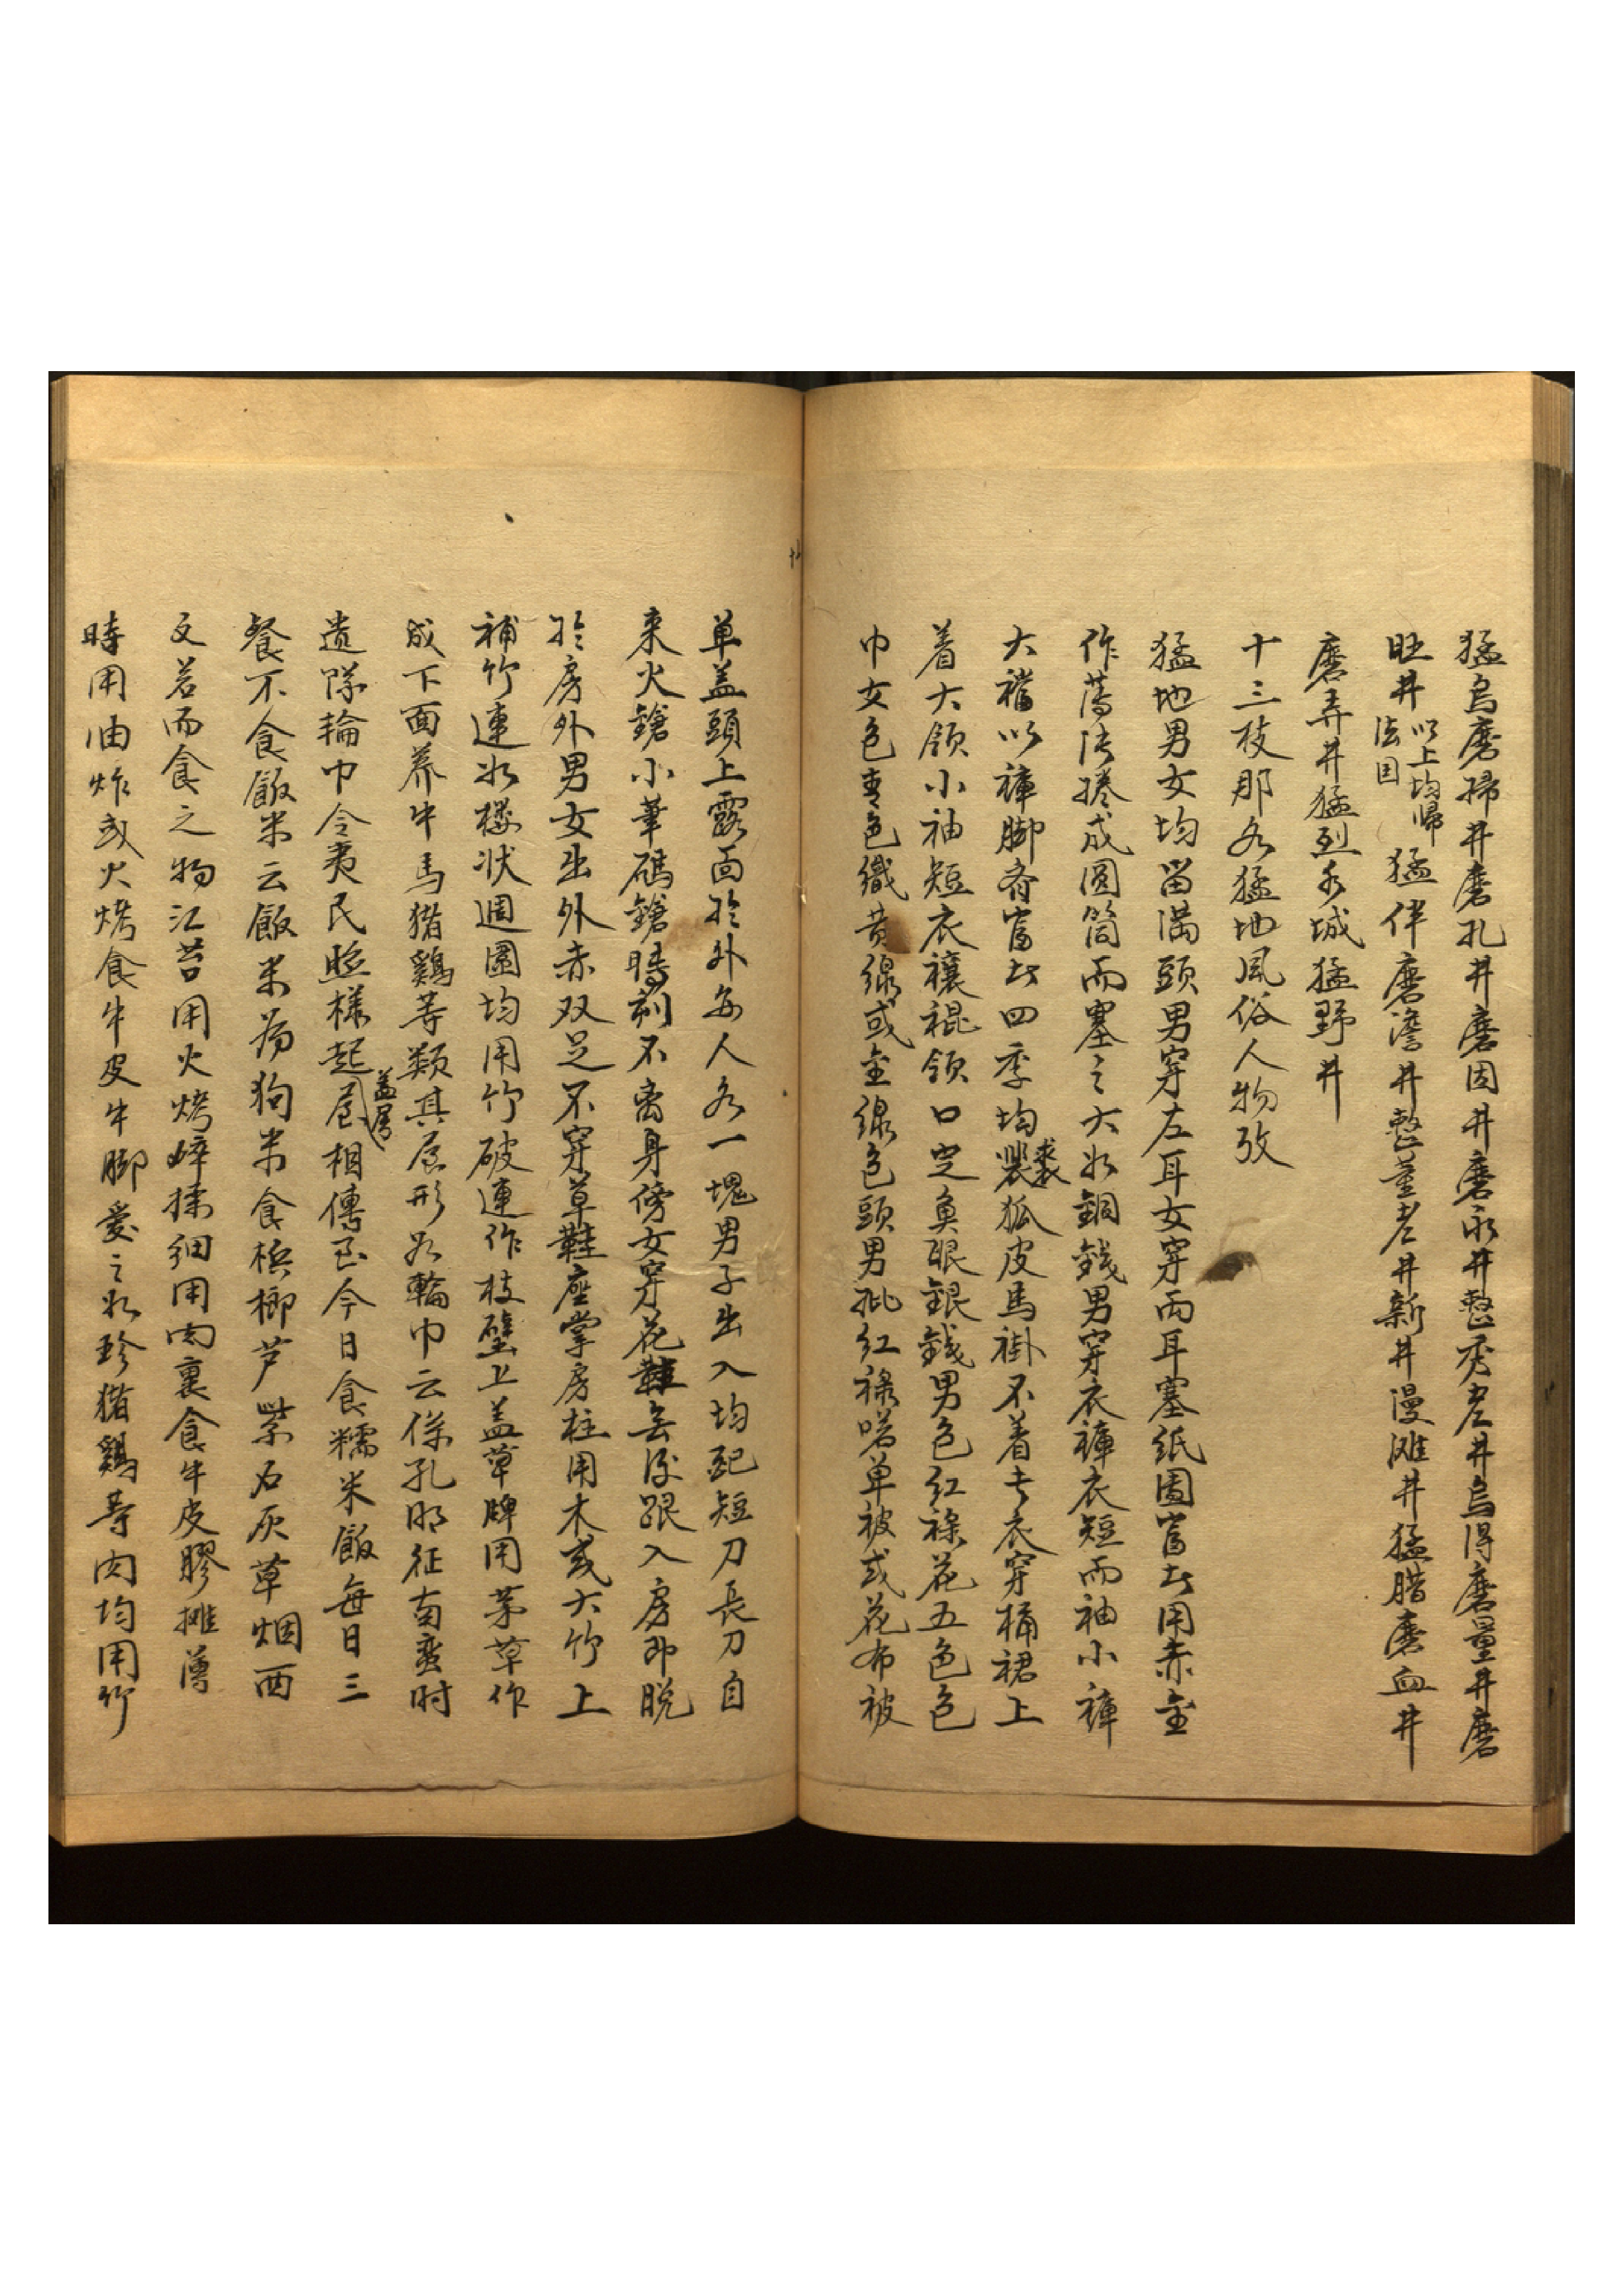 猛烏磨掃井磨孔井磨因井磨永井整秀老井烏得磨量井磨
旺井以上均歸法国猛伴磨澹井整董老井新井漫滩井猛腊磨血井
磨弄井猛烈乡城猛野井
十三枝那各猛地風俗人物攷
猛地男女均留滿頭男穿左耳女穿兩耳塞紙圈富者用赤金
作薄片捲成圓筒而塞之大如銅錢男穿衣褲衣短而袖小褲
大襠以褲脚齐富者四季均裘狐皮馬褂不着長衣穿桶裙上
着大領小袖短衣襪裩領口定魚眼銀錢男包红綠花五色色
巾女包青色織黄線或金線包頭男批红綠嗒单被或花布被
单盖頭上露面於外每人各一塊男子出入均配短刀長刀自
来火鎗小葦碼鎗時刻不离身傍女穿花鞋無後跟入房即脱
於房外男女出外赤双足不穿草鞋座掌房柱用木或大竹上
補竹連如楼状週圍均用竹破連作枝壁上盖草牌用茅草作
成下面养牛馬猪鷄等類其房形如輪巾云係孔明征南蛮时
遗隊輪巾令夷民照樣起盖房相傳至今日食糯米飯每日三
餐不食飯米云飯米为狗米食槟榔芦柴石灰草烟四
文若而食之物江苔用火烤碎揉细用肉裹食牛皮膠摊薄
時用油炸或火烤食牛皮牛脚爱之如珍猪鷄等肉均用竹